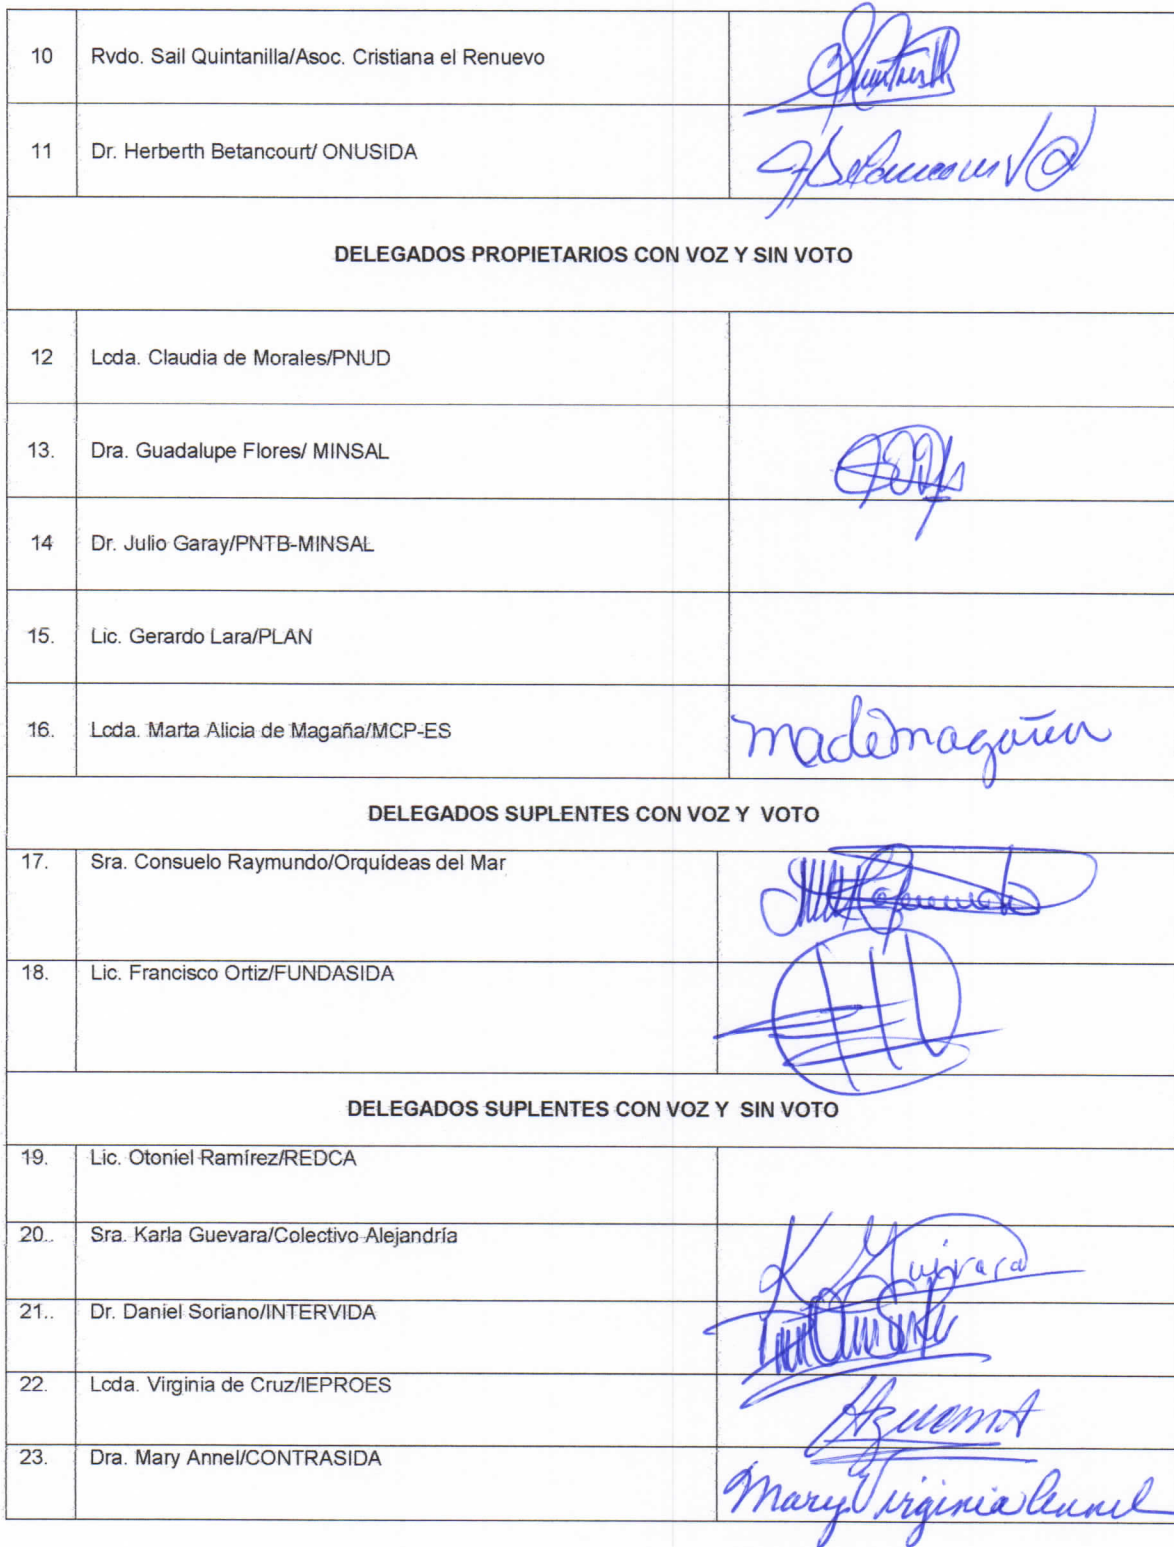 10 Rvdo. Sail Quintanilla/Asoc. Cristiana el Renuevo
11 Dr. Herberth Betancourt/ ONUSIDA
DELEGADOS PROPIETARIOS CON VOZ Y SIN VOTO
12 Lcda. Claudia de Morales/PNUD
13. Dra. Guadalupe Flores/ MINSAL
14 Dr. Julio Garay/PNTB-MINSAL
15. Lic. Gerardo Lara/PLAN
16. Lcda. Marta Alicia de Magaña/MCP-ES
DELEGADOS SUPLENTES CON VOZ Y VOTO
17. Sra. Consuelo Raymundo/Orquídeas del Mar
18. Lic. Francisco Ortiz/FUNDASIDA
DELEGADOS SUPLENTES CON VOZ Y SIN VOTO
19. Lic. Otoniel Ramírez/REDCA
20.. Sra. Karla Guevara/Colectivo Alejandría
21.. Dr. Daniel Soriano/INTERVIDA
22. Lcda. Virginia de Cruz/IEPROES
23. Dra. Mary Annel/CONTRASIDA Mary Virginia Annel